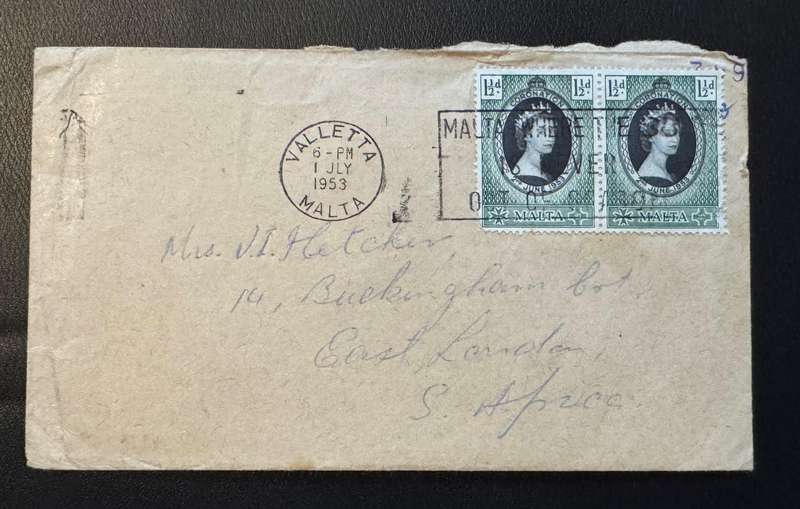 VALLETTA
6-PM
1 JLY
1953
MALTA
MALTA WHERE
1½d. 1½d.
CORONATION
JUNE 1953
MALTA
1½d. 1½d.
CORONATION
JUNE 1953
MALTA
Mrs. J.I. Fletcher,
14, Buckingham
East London,
S. Africa.